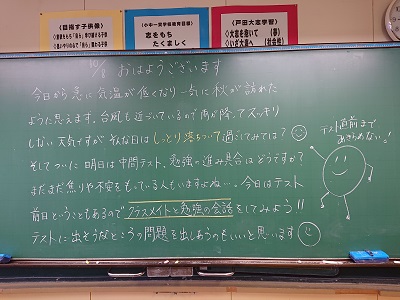 〈目指す子供像〉
〈小中一貫校教育目標〉
志をもち
たくましく
〈戸田大志学習〉
◇大志を抱いて
いざ大志へ
10/8 おはようございます
今日から急に気温が低くなり一気に秋が訪れた
ように思えます。台風も近づいているので雨が降ってスッキリ
しない天気ですが そんな日は しっとり落ちついて過ごしてみては?
そしてついに明日は中間テスト、勉強の進み具合はどうですか?
まだまだ焦りや不安をもっている人もいますよね…。今日はテスト
前日ということもあるので クラスメイトと勉強の会話をしてみよう!!
テストに出そうなところの問題を出しあうのもいいと思います
テスト直前まで
あきらめない!!